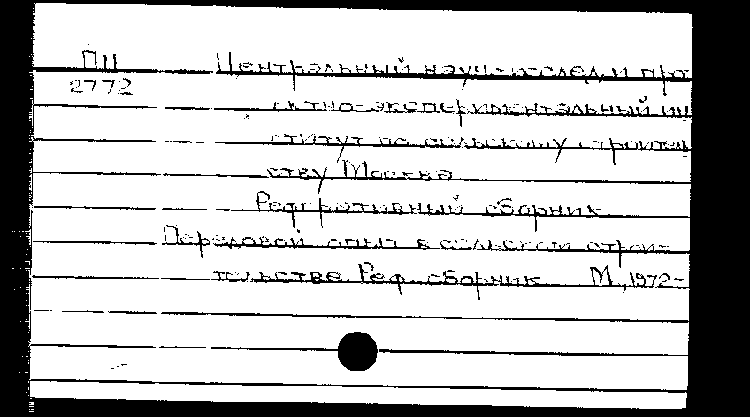 ПII Центральный науч-исслед. и прое
2772
ктно-экспериментальный ин
ститут по сельскому строитель
ству Москва
Реферативный сборник
Передовой опыт в сельском строи-
тельстве Реф. сборник М., 1972-